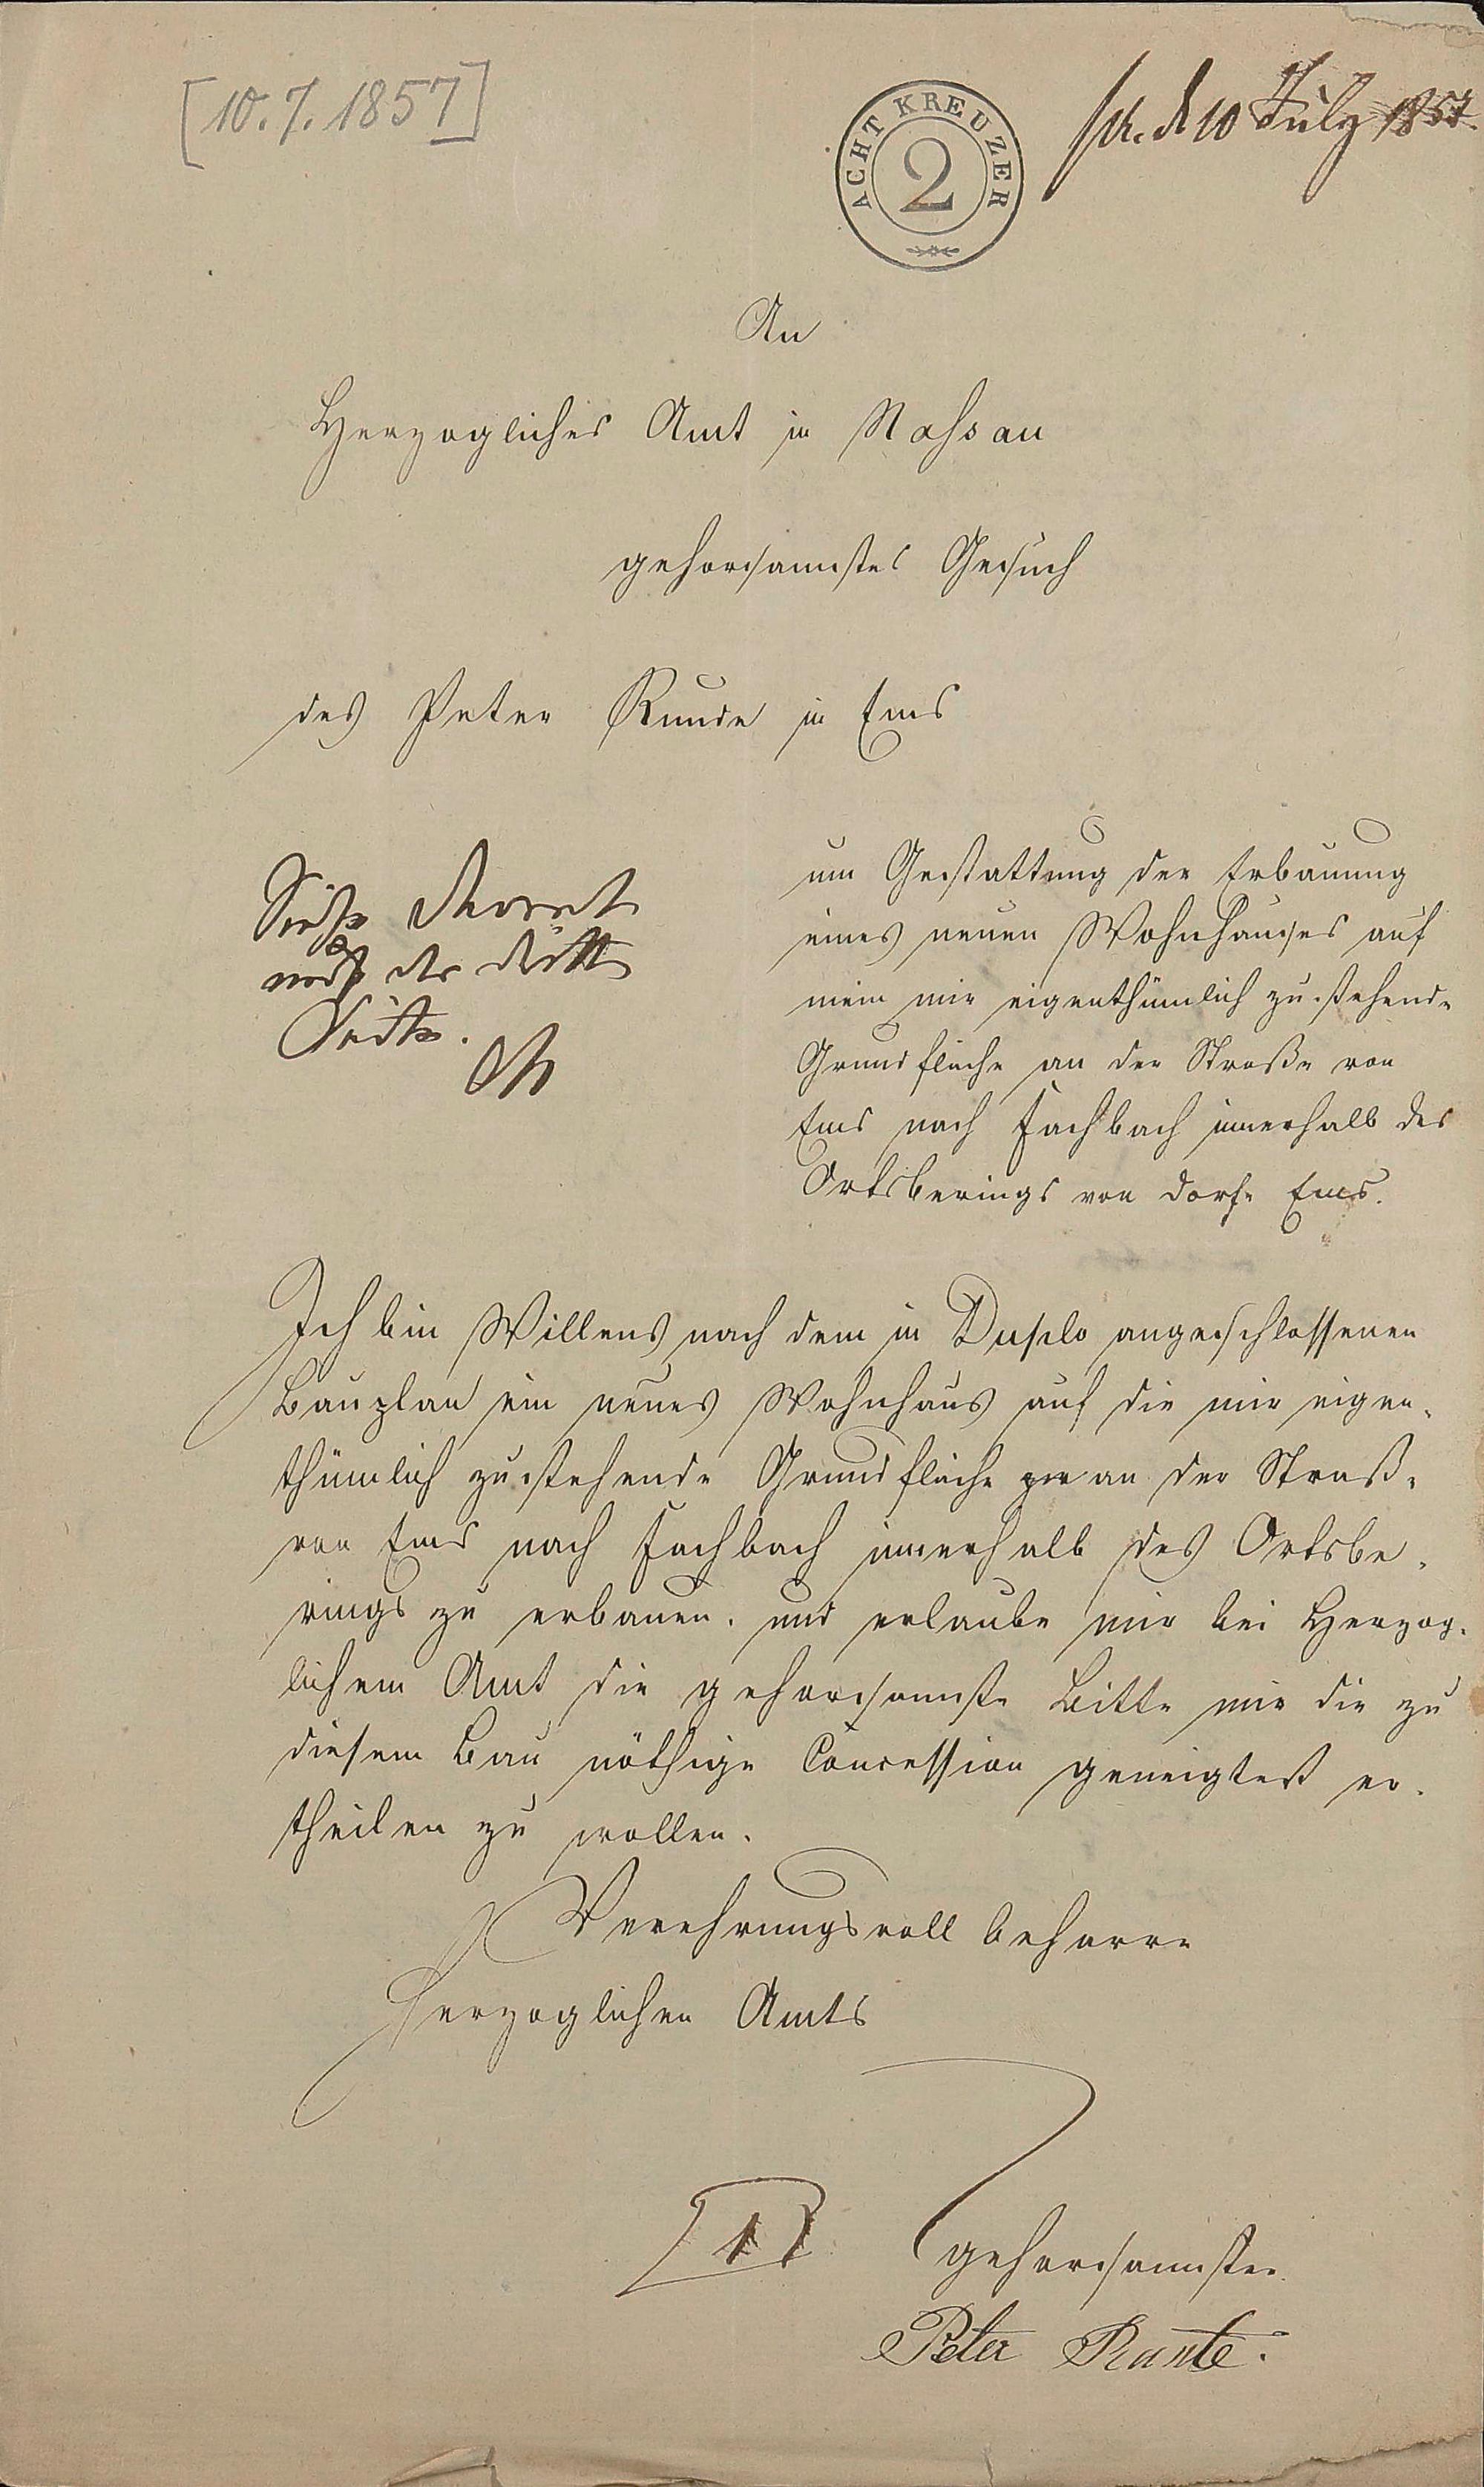 [10.7.1857]
ACHT KREUZER
2
pr. d 10 July 1857.
An
Herzogliches Amt in Nassau
gehorsamstes Gesuch
des Peter Runde in Ems
um Gestattung der Erbauung
eines neuen Wohnhauses auf
mein mir eigenthümlich zustehende
Grundfläche an der Straße von
Ems nach Fachbach innerhalb des
Ortsberings von Dorfe Ems.
Siehe
der dritten
Seite.
Ich bin Willens nach dem in Duplo angeschlossenen
Bauplan ein neues Wohnhaus auf die mir eigen-
thümlich zustehende Grundfläche an der Straße
von Ems nach Fachbach innerhalb des Ortsbe-
rings zu erbauen. und erlaube mir bei Herzog-
lichem Amt die gehorsamste Bitte mir die zu
diesem Bau nöthige Concession geneigtest er-
theilen zu wollen.
Verehrungsvoll beharre
Herzoglichen Amts
gehorsamster
Peter Runte.